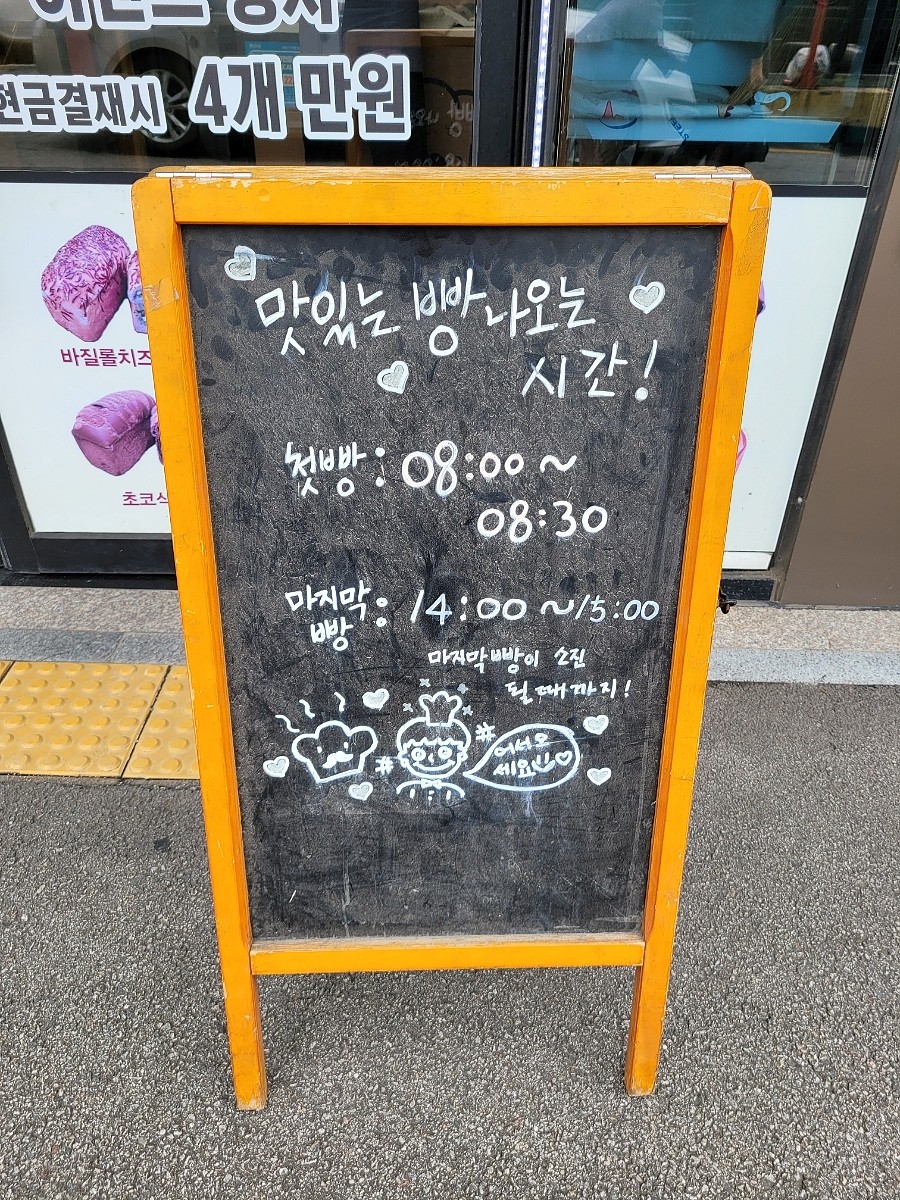 현금결재시 4개 만원
바질롤치즈
초코식
맛있는 빵 나오는
시간!
첫빵: 08:00 ~
08:30
마지막 빵: 14:00 ~ 15:00
마지막 빵이 소진
될 때까지!
어서오
세요